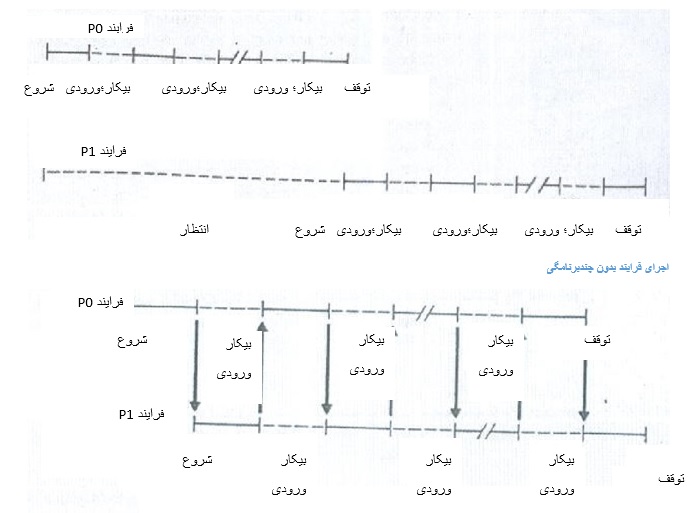 فرایند P0
شروع بیکار؛ورودی بیکار؛ورودی بیکار؛ ورودی توقف
فرایند P1
انتظار شروع بیکار؛ورودی بیکار؛ورودی بیکار؛ ورودی توقف
اجرای فرایند بدون چندبرنامگی
فرایند P0
شروع بیکار بیکار بیکار توقف
ورودی ورودی ورودی
فرایند P1
شروع بیکار بیکار بیکار
ورودی ورودی ورودی توقف